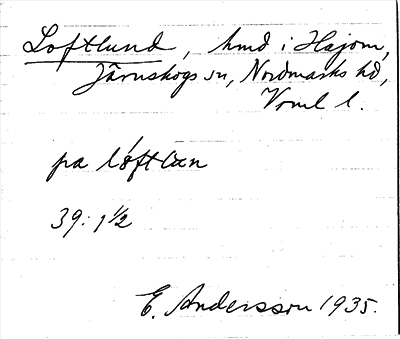 Loftlund, hmd i Hajom,
Järnskogs sn, Nordmarks hd,
Vrml l.
pa løftlæn
39: 1 1/2
E. Andersson 1935.